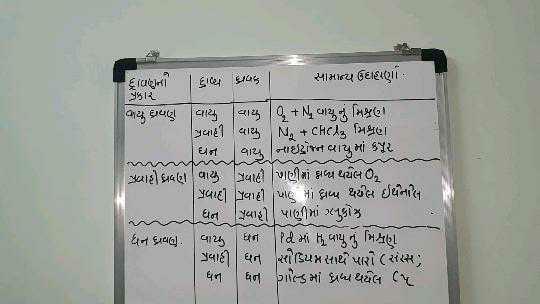 દ્રાવણનો પ્રકાર દ્રાવ્ય દ્રાવક સામાન્ય ઉદાહરણો
વાયુ દ્રાવણ વાયુ વાયુ O2 + N2 વાયુ નું મિશ્રણ
પ્રવાહી વાયુ N2 + CHCl3 મિશ્રણ
ઘન વાયુ નાઇટ્રોજન વાયુ માં કપુર
પ્રવાહી દ્રાવણ વાયુ પ્રવાહી પાણીમાં દ્રાવ્ય થયેલ O2
પ્રવાહી પ્રવાહી પાણીમાં દ્રાવ્ય થયેલ ઈથેનોલ
ઘન પ્રવાહી પાણીમાં ગ્લુકોઝ
ઘન દ્રાવણ વાયુ ઘન Pd માં H2 વાયુ નું મિશ્રણ
પ્રવાહી ઘન સોડિયમ સાથે પારો (સંરસ
ઘન ઘન ગોલ્ડ માં દ્રાવ્ય થયેલ